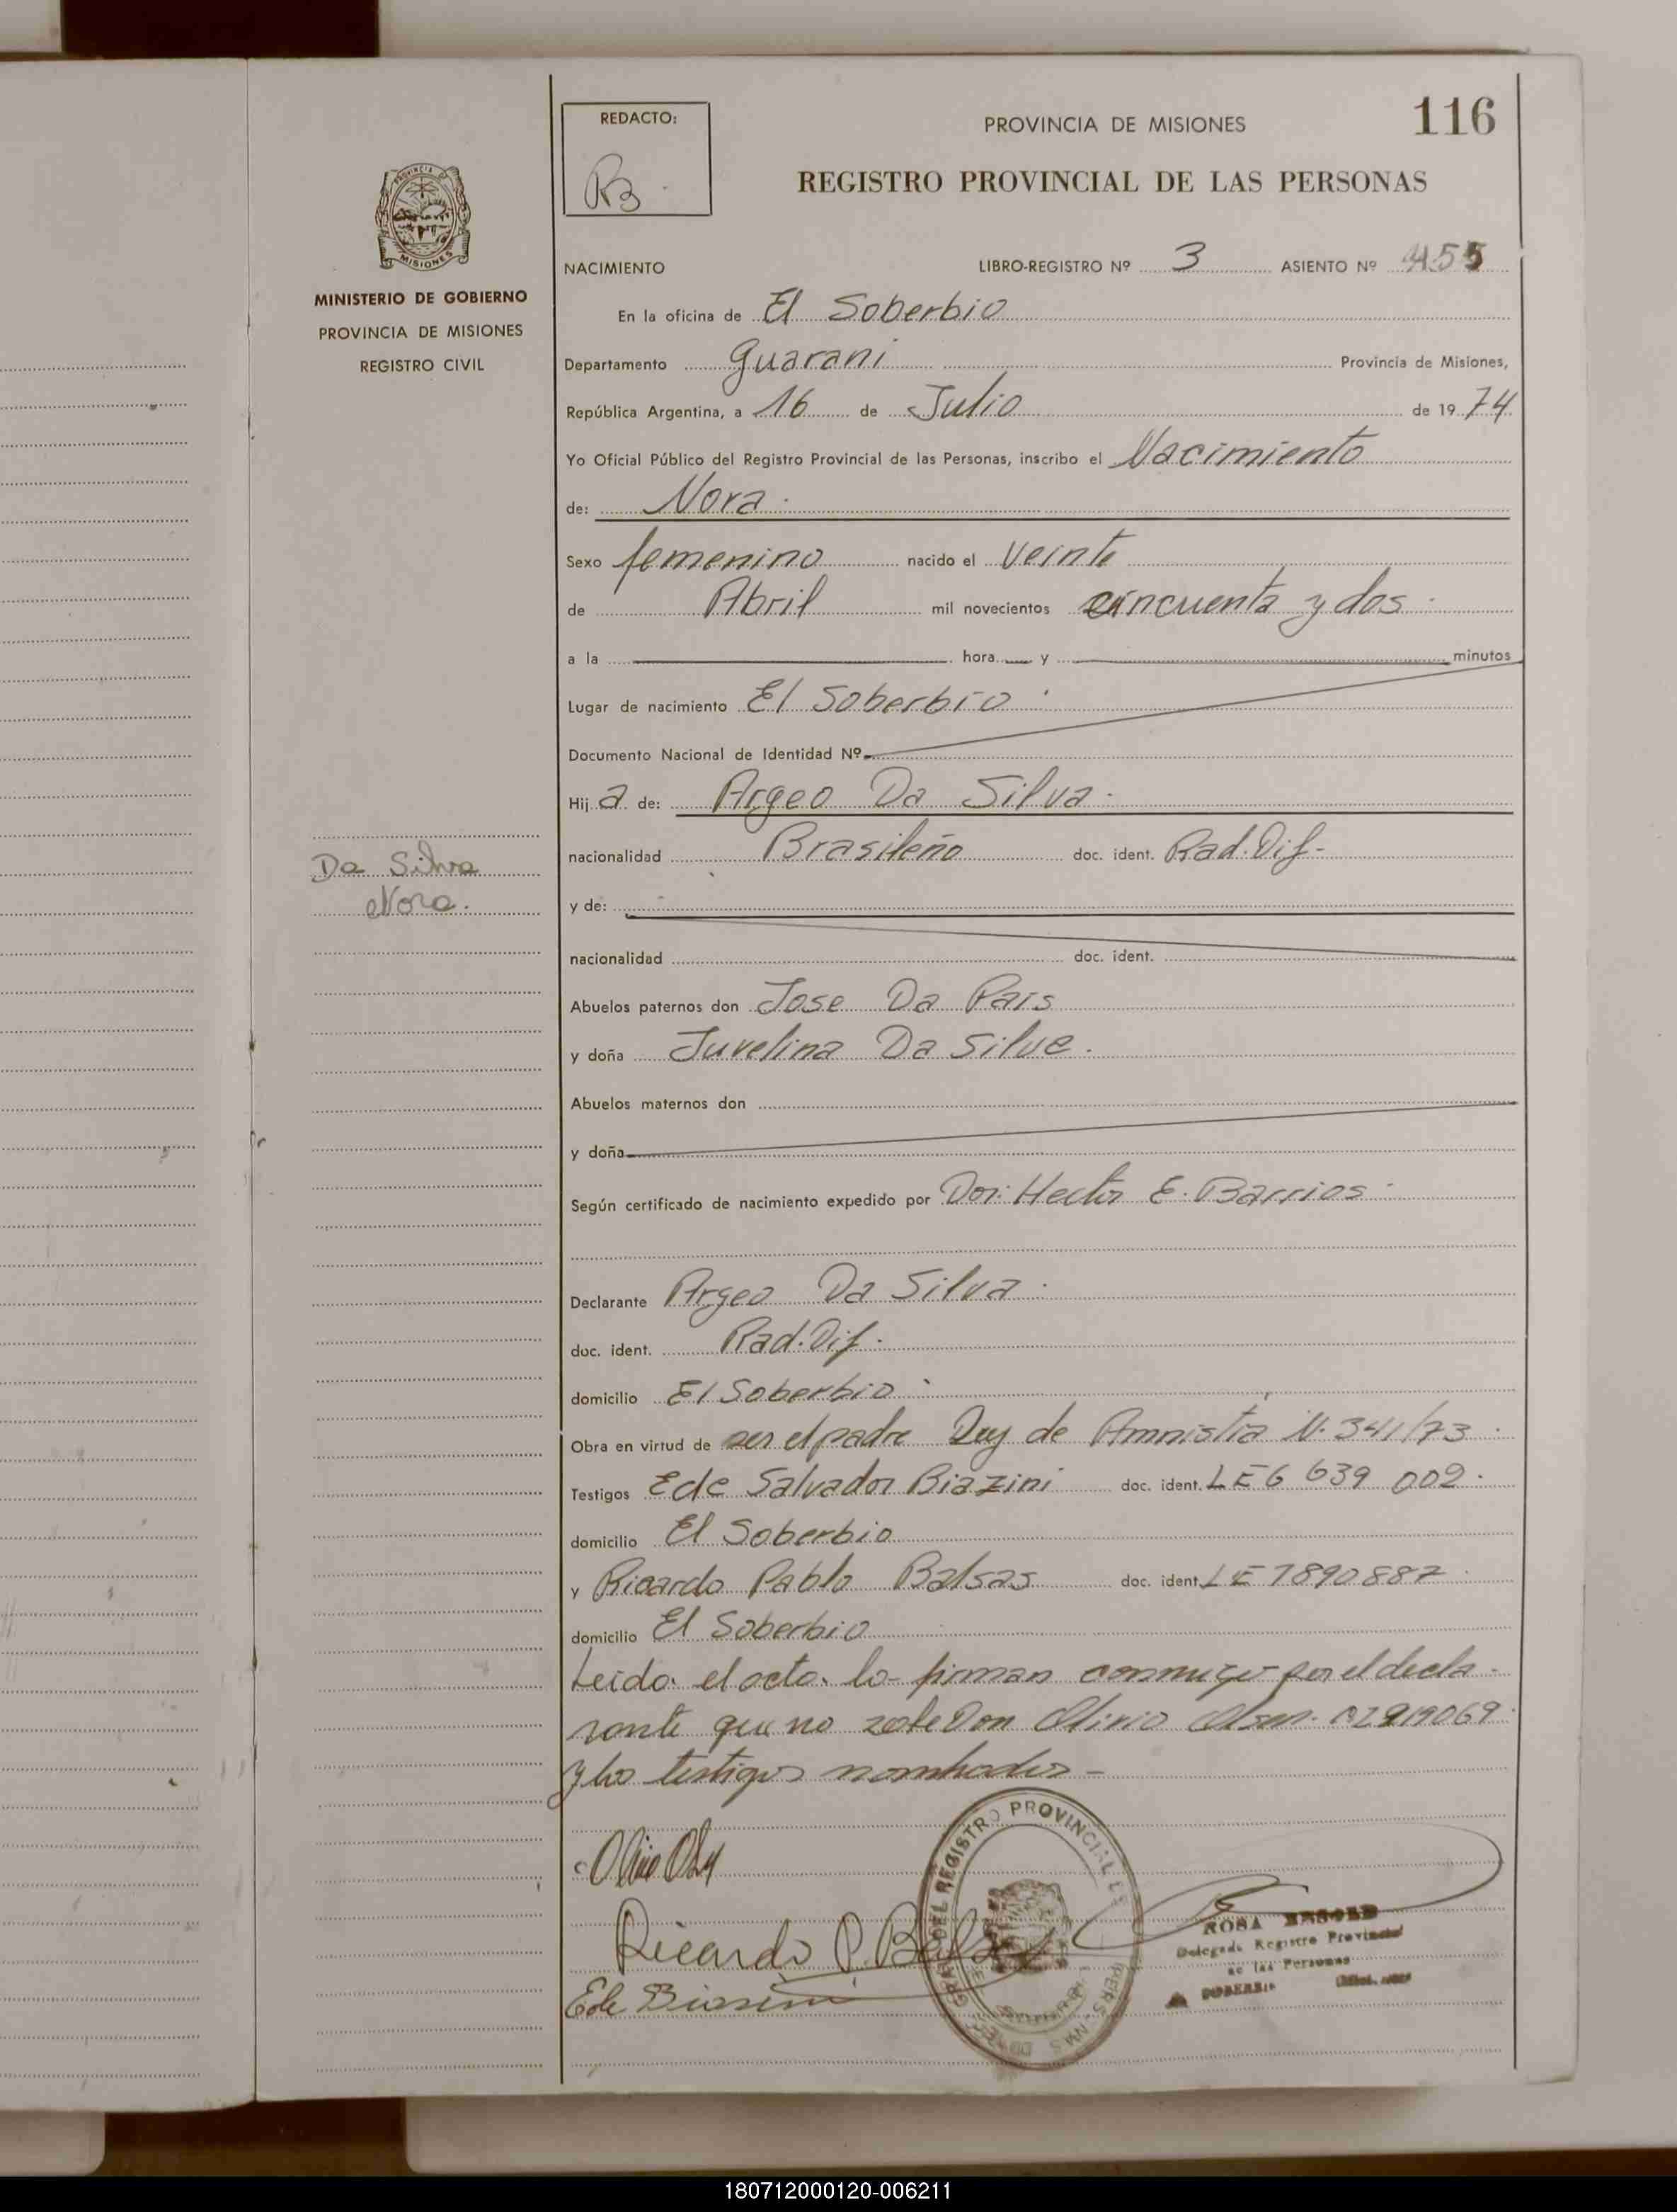 REDACTO:
RB
PROVINCIA DE MISIONES
116
REGISTRO PROVINCIAL DE LAS PERSONAS
PROVINCIA DE
MISIONES
MINISTERIO DE GOBIERNO
PROVINCIA DE MISIONES
REGISTRO CIVIL
NACIMIENTO LIBRO-REGISTRO Nº 3 ASIENTO Nº 455
En la oficina de El Soberbio
Departamento Guarani Provincia de Misiones,
República Argentina, a 16 de Julio de 1974.
Yo Oficial Público del Registro Provincial de las Personas, inscribo el Nacimiento
de: Nora.
Sexo femenino nacido el Veinte
de Abril mil novecientos cincuenta y dos.
a la hora y minutos
Lugar de nacimiento El Soberbio.
Documento Nacional de Identidad Nº
Hija de: Argeo Da Silva.
nacionalidad Brasileño doc. ident. Rad. Dif-
Da Silva
Nora.
y de:
nacionalidad doc. ident.
Abuelos paternos don Jose Da Pais
y doña Juvelina Da Silva.
Abuelos maternos don
y doña
Según certificado de nacimiento expedido por Dor. Hector E. Barrios.
Declarante Argeo Da Silva.
doc. ident. Rad. Dif.
domicilio El Soberbio.
Obra en virtud de ser el padre Ley de Amnistia N. 341/73.
Testigos Ede Salvador Biazini doc. ident. LE 6 639 002.
domicilio El Soberbio
y Ricardo Pablo Balsas doc. ident. LE 7890887.
domicilio El Soberbio
Leido el acto lo firman conmigo por el decla-
rante que no sabe Don Olirio Olsen
y los testigos nombrados -
Ricardo P. Balsas
Ede Biasini
DEL REGISTRO PROVINCIAL
ROSA
Delegada Registro Provincial
de las Personas
SOBERBIO
180712000120-006211